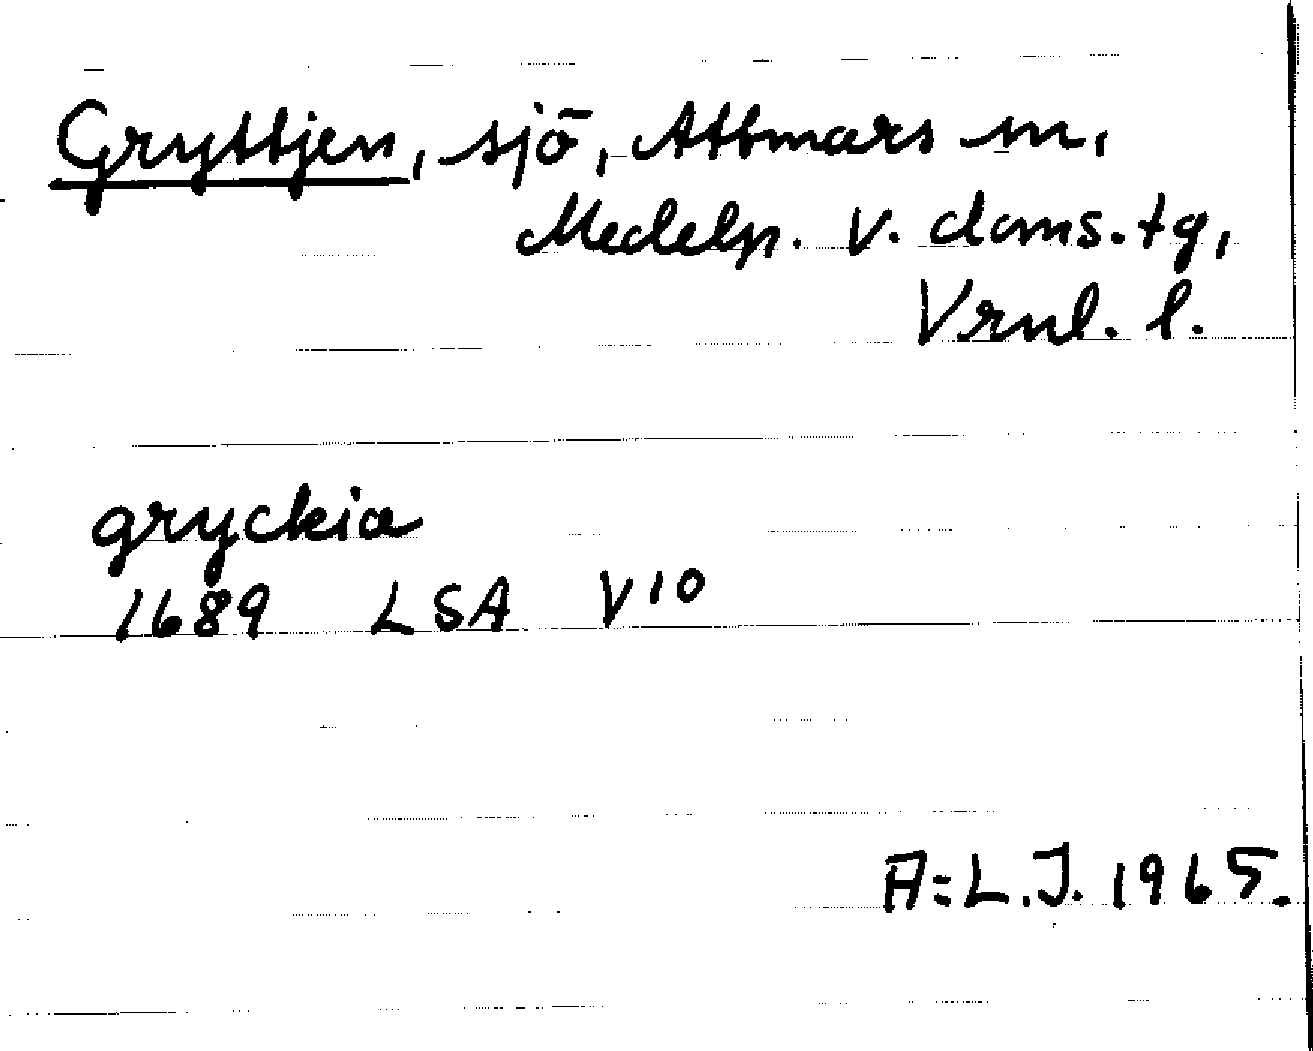 Gryttjen, sjö, Attmars sn,
Medelp. v. doms.tg,
Vrnl. l.
gryckia
1689 LSA V10
A:L.J. 1965.